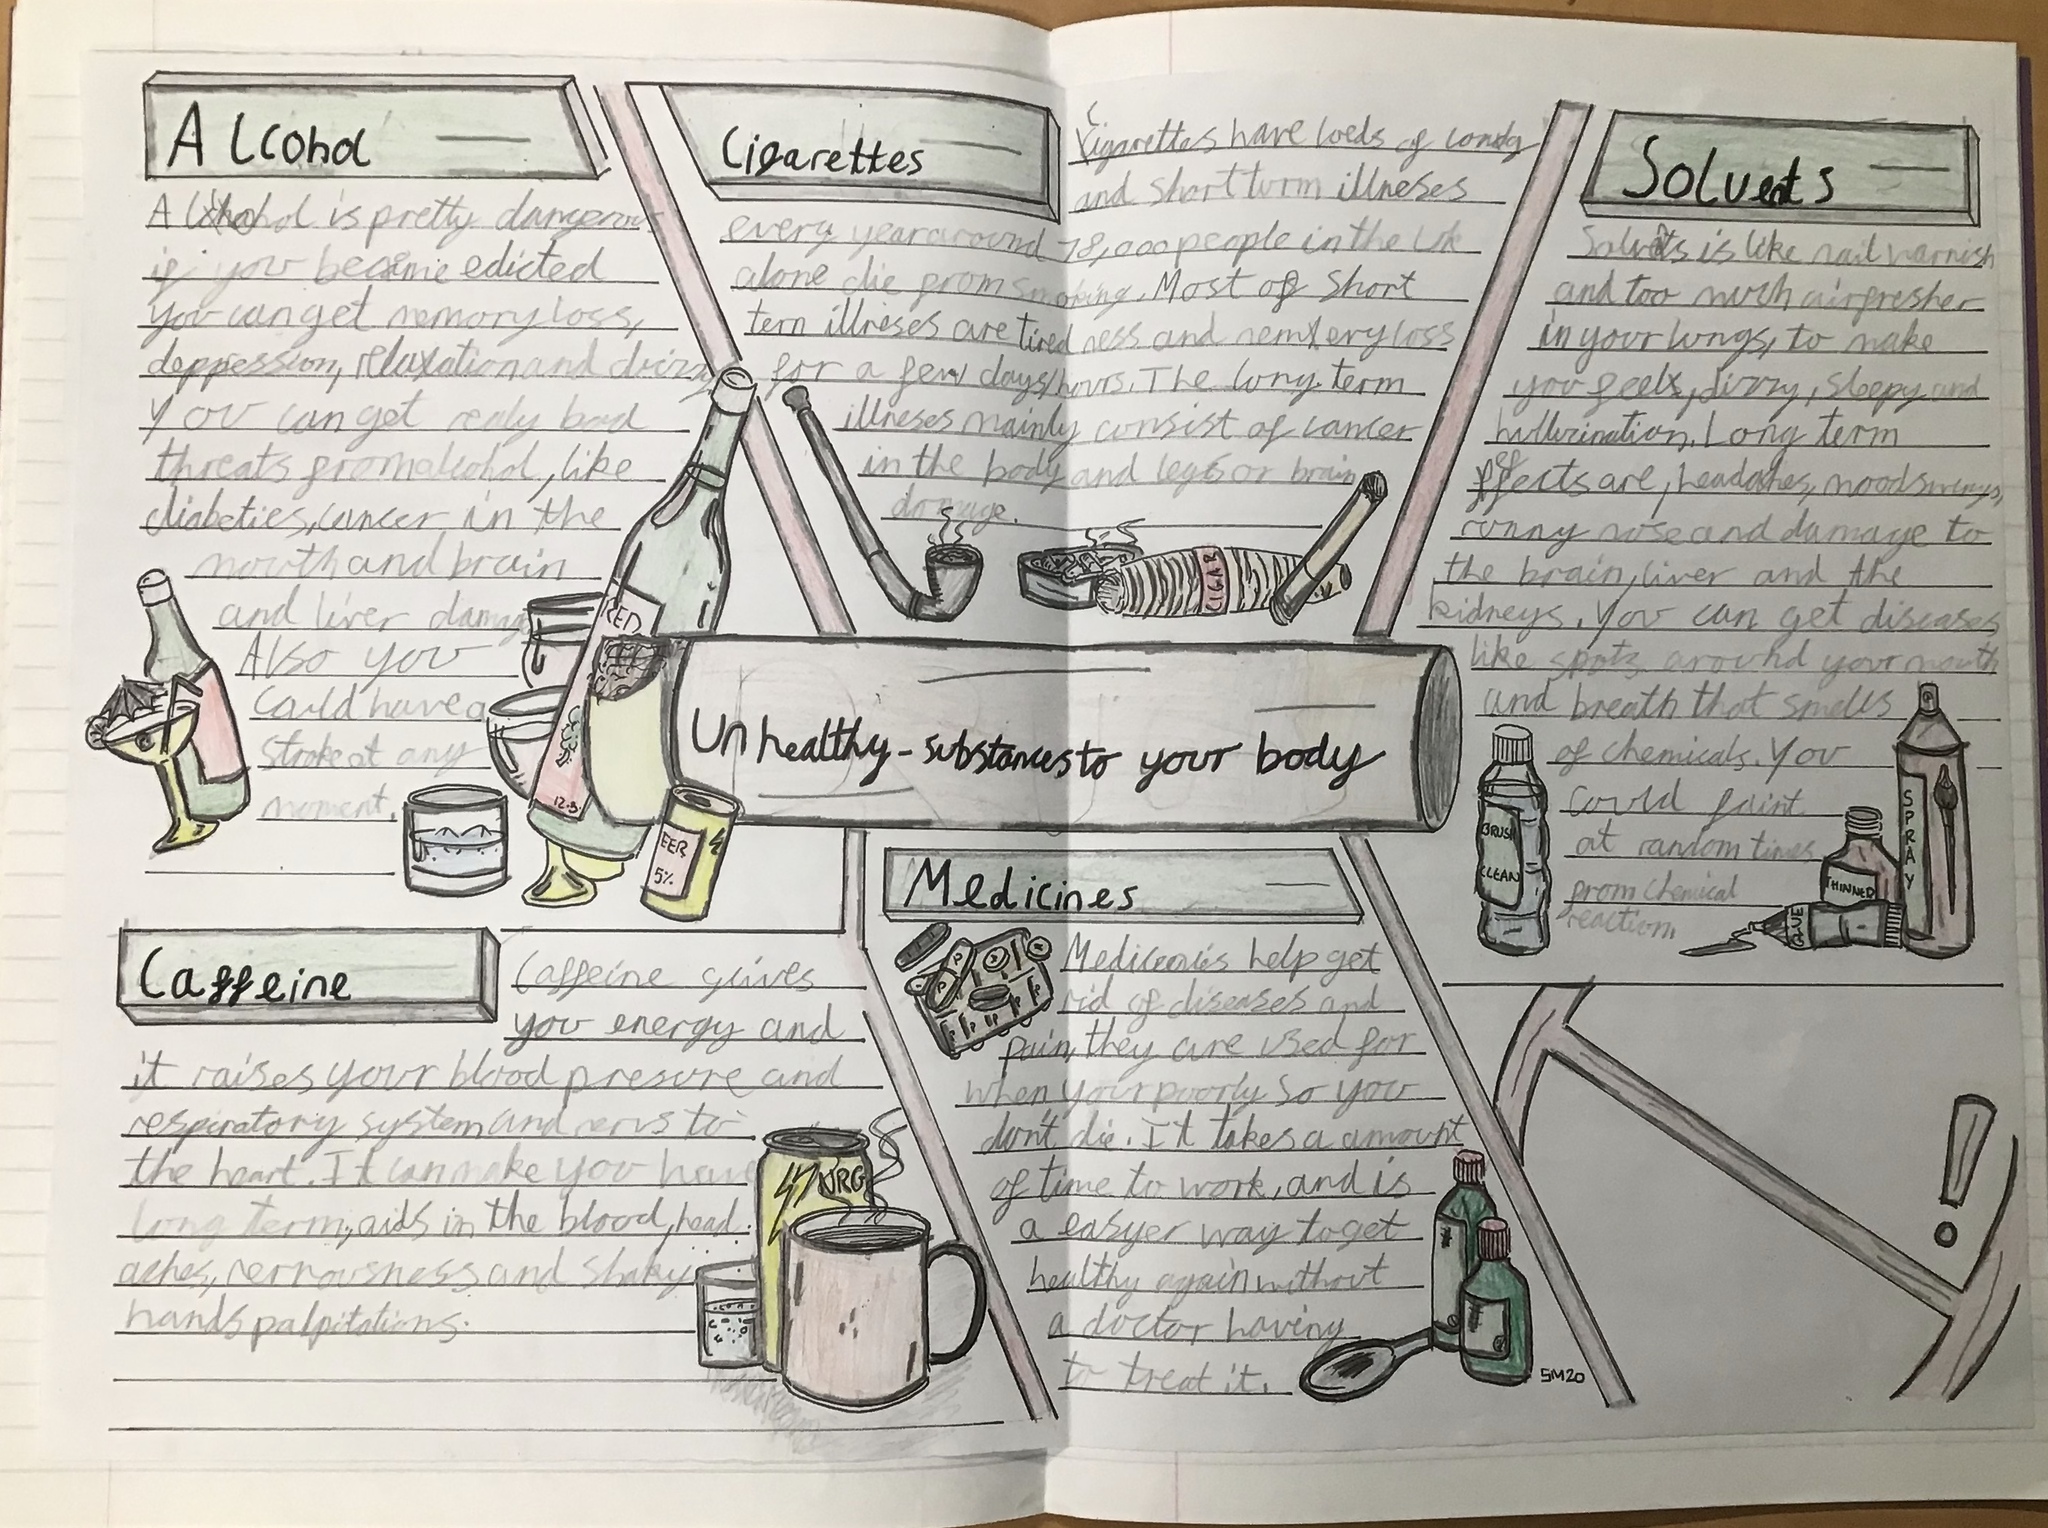 Alcohol
Alcohol is pretty dangerous
if you become edicted
you can get memory loss,
deppression, relaxation and dizzy
You can get realy bad
threats from alcohol, like
diabeties, cancer in the
mouth and brain
and liver damage
Also you
Could have a
stroke at any
moment.
Cigarettes
Cigarettes have loeds of
and short turm illneses
every year around 78,000 people in the Uk
alone die from smoking. Most of short
tern illneses are tiredness and memery loss
for a few days/hours. The long term
illneses mainly consist of cancer
in the body and legs or brain
damage.
Solvents
Solvents is like nail varnish
and too much airfresher
in your lungs, to make
you feel, dizzy, sleepy and
hullucination. Long term
effects are, headaches, moodswings,
runny nose and damage to
the brain, liver and the
kidneys. You can get diseases
like spots around your mouth
and breath that smells
of chemicals. You
could faint
at random times
from chemical
reaction
RED
12.5.
EER
5%
CIGAR
Unhealthy-substances to your body
BRUSH
CLEAN
SPRAY
THINNER
GLUE
Caffeine
Caffeine gives
you energy and
it raises your blood presure and
respiratory system and nervs to
the heart. It can make you have
long term, aids in the blood, head
aches, nernousness and shaky
hands palpitations.
NRG
Medicines
Medicenes help get
rid of diseases and
pain, they are used for
when your poorly so you
don't die. It takes a amount
of time to work, and is
a easyer way to get
healthy again without
a doctor having
to treat it.
SM20
!